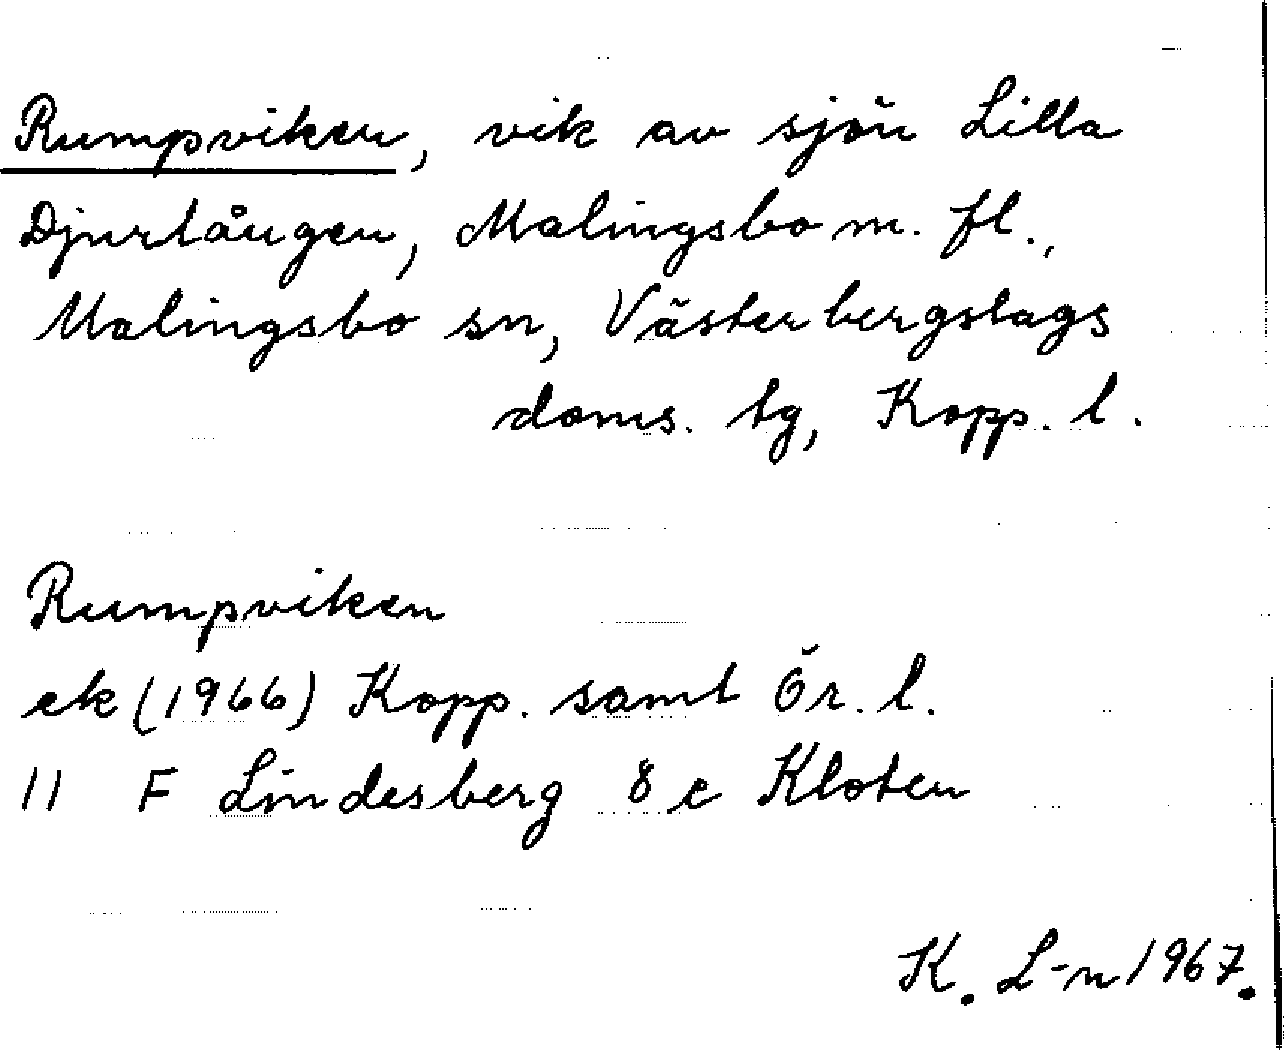 Rumpviken, vik av sjön Lilla
Djurlången, Malingsbo m. fl.,
Malingsbo sn, Västerbergslags
doms. lg, Kopp. l.
Rumpviken
ek (1966) Kopp. samt Ör. l.
11 F Lindesberg 8 c Kloten
K. L-n 1967.